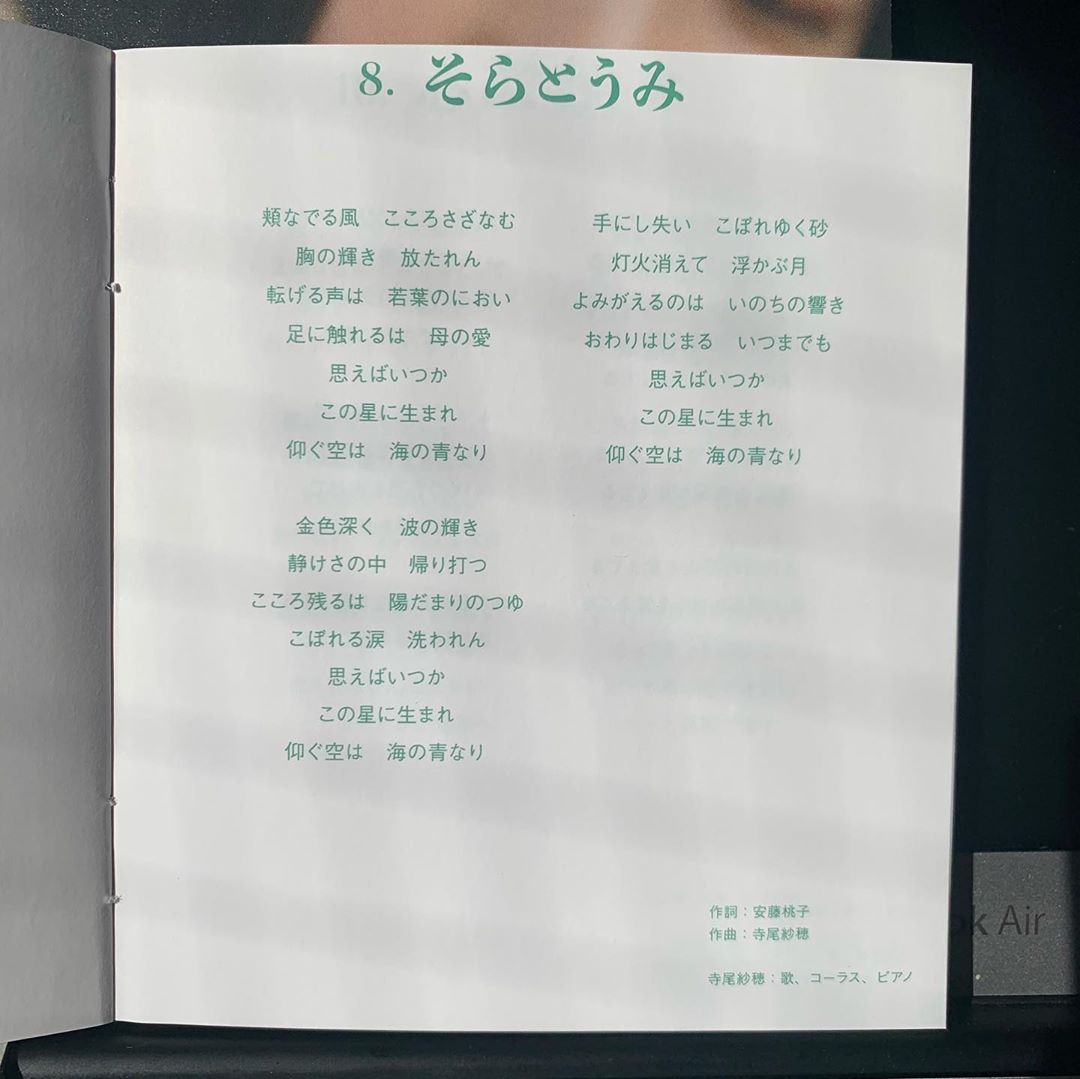 8. そらとうみ
頬なでる風　こころさざなむ
胸の輝き　放たれん
転げる声は　若葉のにおい
足に触れるは　母の愛
思えばいつか
この星に生まれ
仰ぐ空は　海の青なり
金色深く　波の輝き
静けさの中　帰り打つ
こころ残るは　陽だまりのつゆ
こぼれる涙　洗われん
思えばいつか
この星に生まれ
仰ぐ空は　海の青なり
手にし失い　こぼれゆく砂
灯火消えて　浮かぶ月
よみがえるのは　いのちの響き
おわりはじまる　いつまでも
思えばいつか
この星に生まれ
仰ぐ空は　海の青なり
作詞：安藤桃子
作曲：寺尾紗穂
寺尾紗穂：歌、コーラス、ピアノ
ok Air